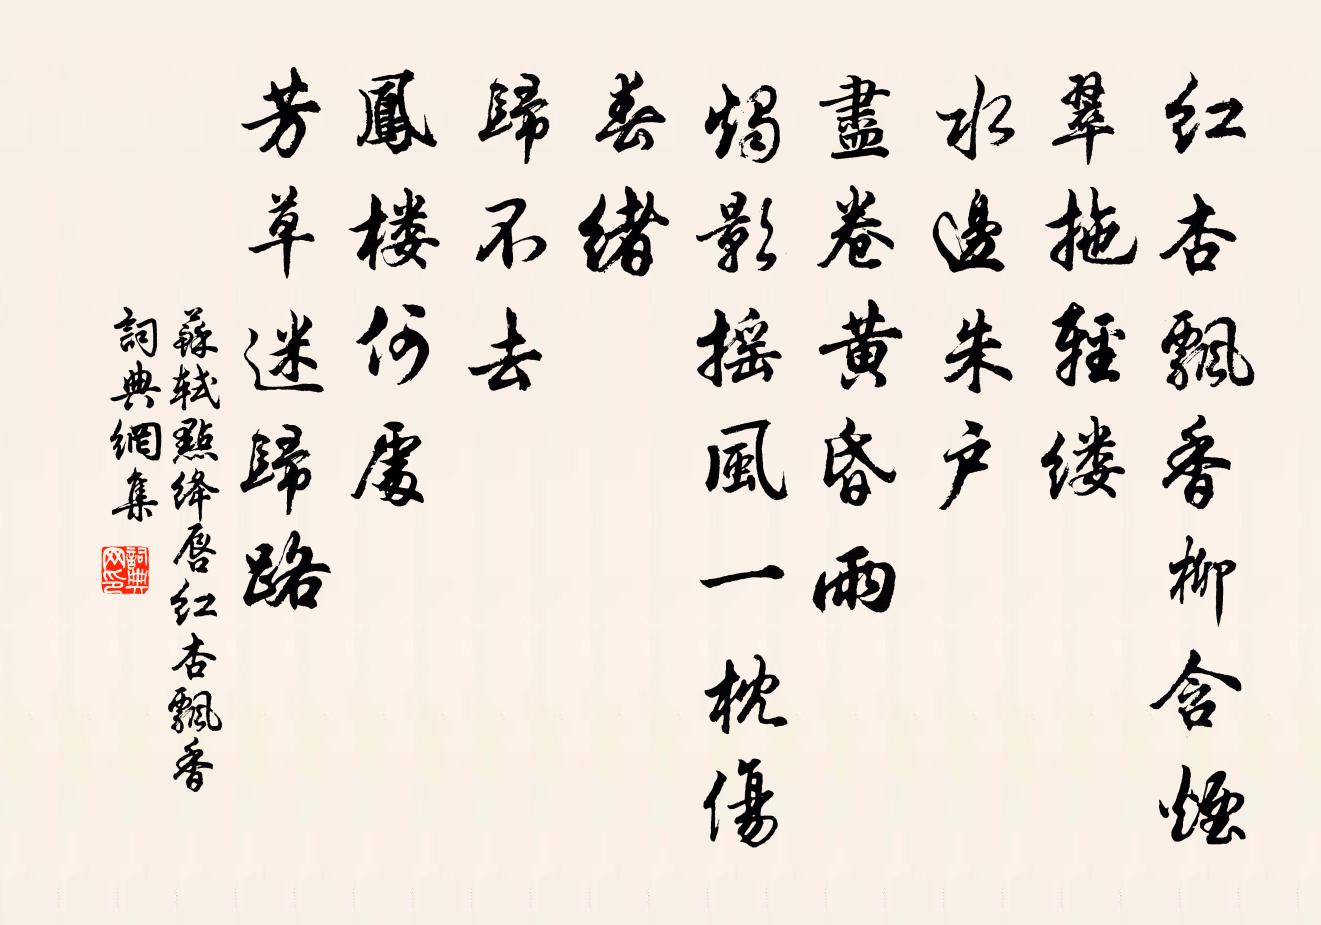 红杏飄香柳含煙
翠拖輕缕
水邊朱户
盡卷黄昏雨
燭影摇風一枕傷
春緒
歸不去
鳳楼何處
芳草迷歸路
蘇軾點绛唇红杏飄香
詞典網集
詞典网印